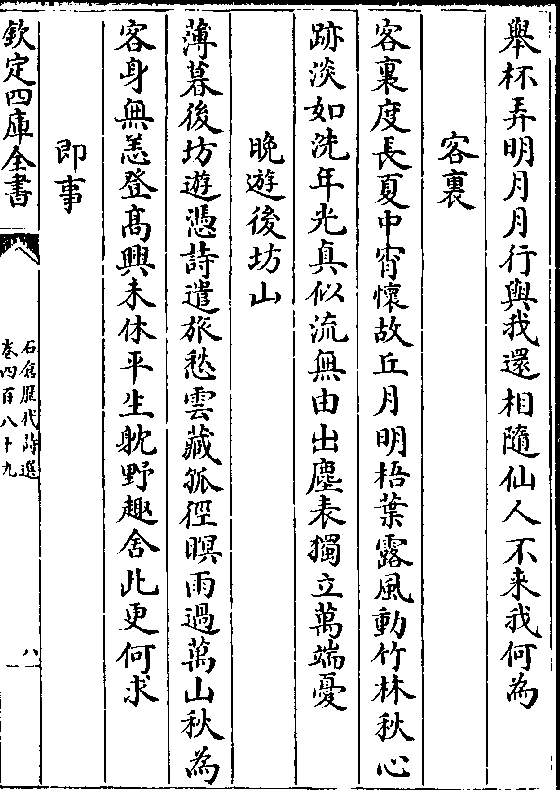 舉杯弄明月月行與我還相隨仙人不来我何為
客裏
客裏度長夏中宵懷故丘月明梧葉露風動竹林秋心
跡淡如洗年光真似流無由出塵表獨立萬端憂
晚遊後坊山
薄暮後坊遊憑詩遣旅愁雲藏孤徑暝雨過萬山秋為
客身無恙登髙興未休平生躭野趣舍此更何求
即事
欽定四庫全書
石倉歷代詩選
卷四百八十九
八